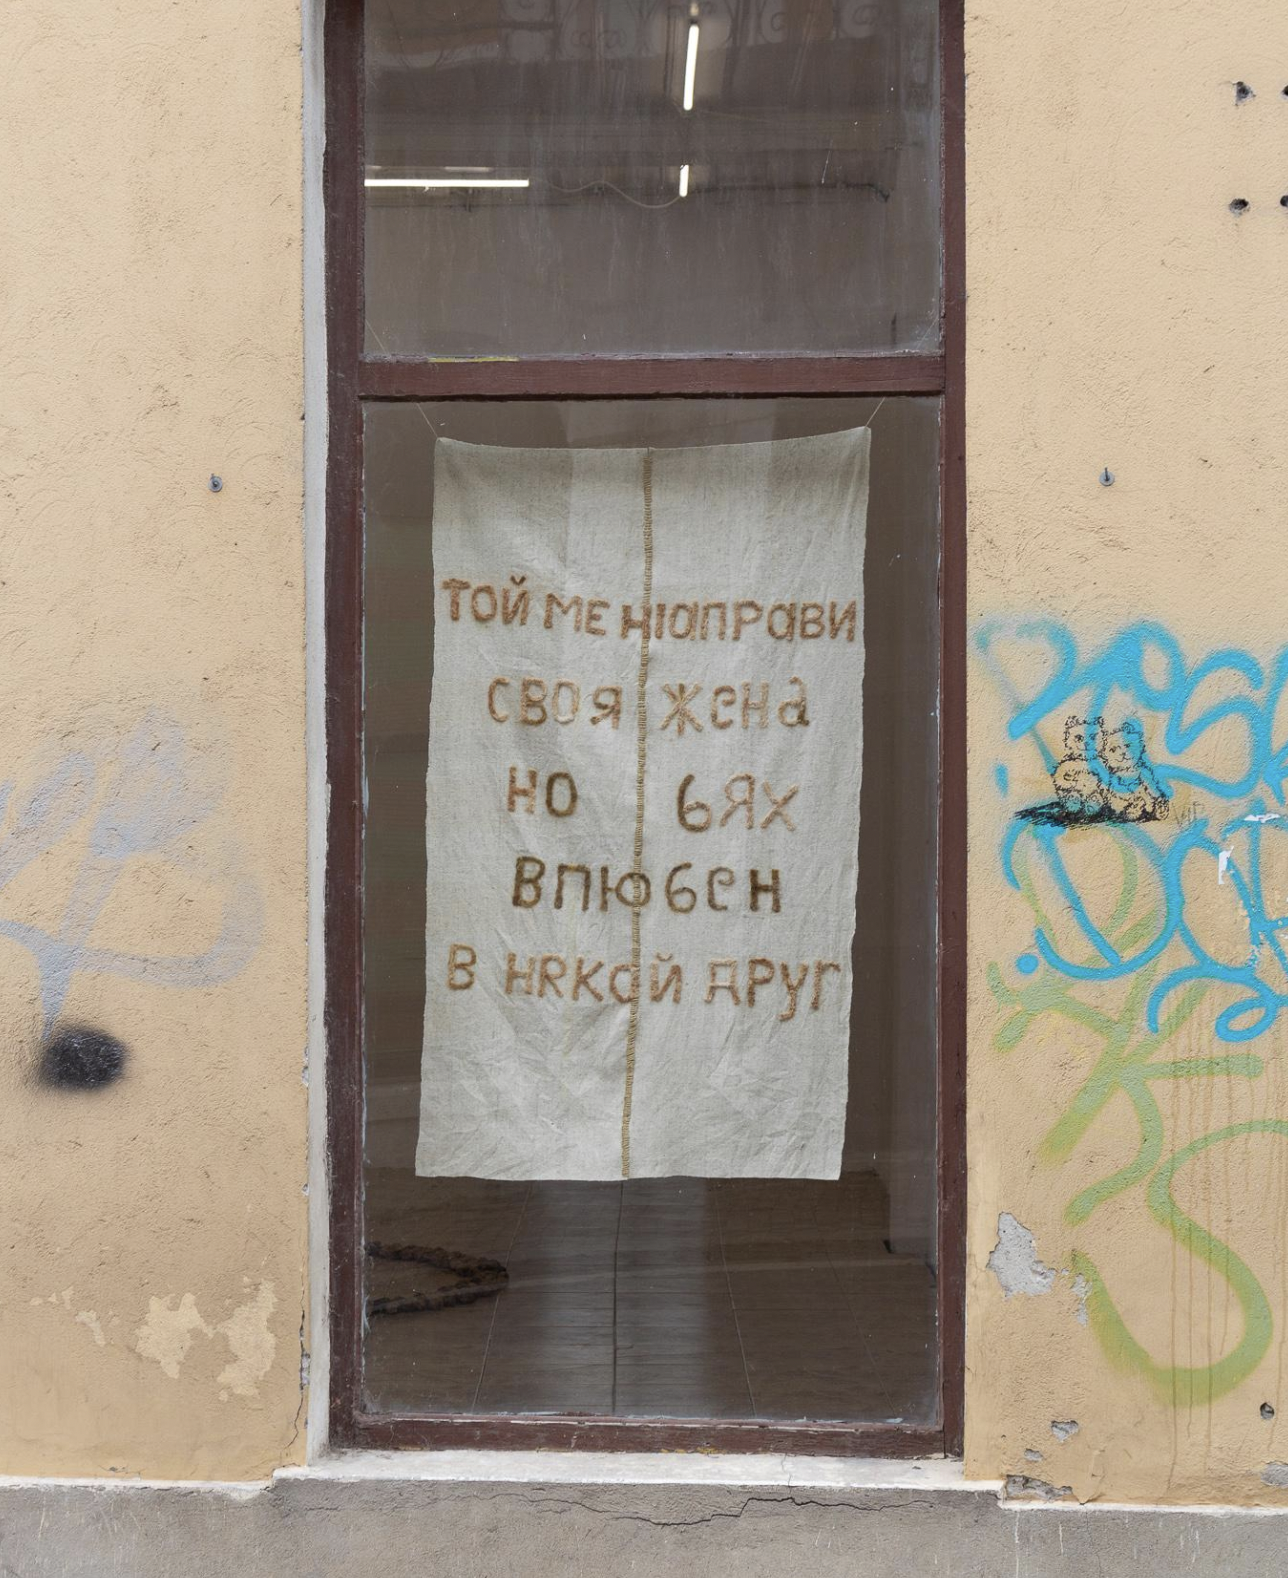 ТОЙ МЕ НАПРАВИ
СВОЯ ЖЕНА
НО БЯХ
ВЛЮБЕН
В НЯКОЙ ДРУГ